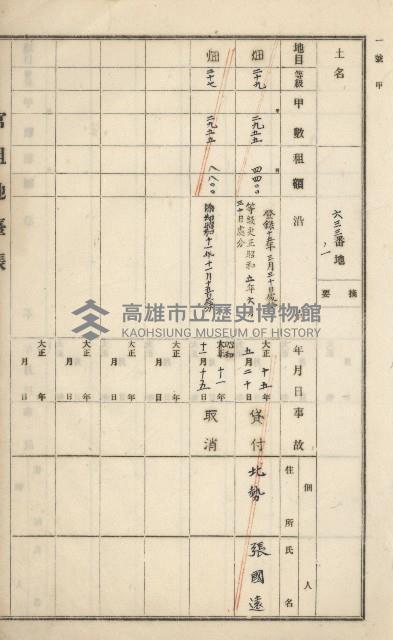 一號甲
土名
六三三番地ノ一
摘要
地目
等級
甲數
租額
沿革
年月日
事故
個人
住所
氏名
畑
二十九
二九五五
四四〇〇
登錄十五年三月三十日
等級更正昭和五年六月三十日處分
大正十五年五月二十日
貸付
北勢
張國遠
畑
二十七
二九五五
除却昭和十一年十一月十五日
大正昭和十一年十一月十五日
取消
大正年月日
大正年月日
大正年月日
大正年月日
官租地臺帳
高雄市立歷史博物館
KAOHSIUNG MUSEUM OF HISTORY